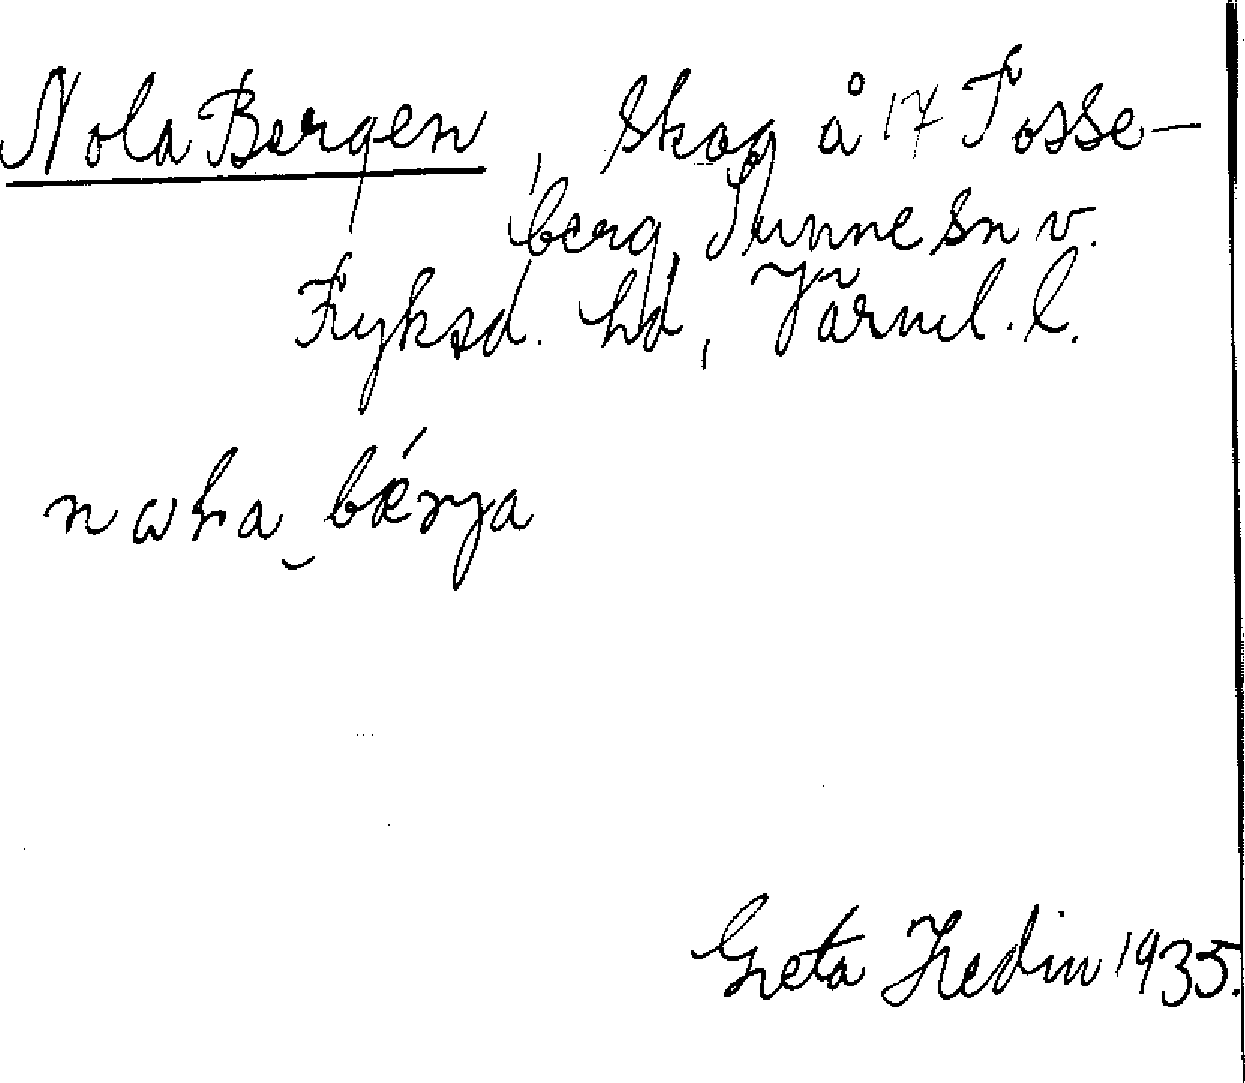 Nola Bergen, skog å 17 Fosse-
berg, Sunne sn v.
Fryksd. hd, Värml. l.
Greta Hedin 1935.